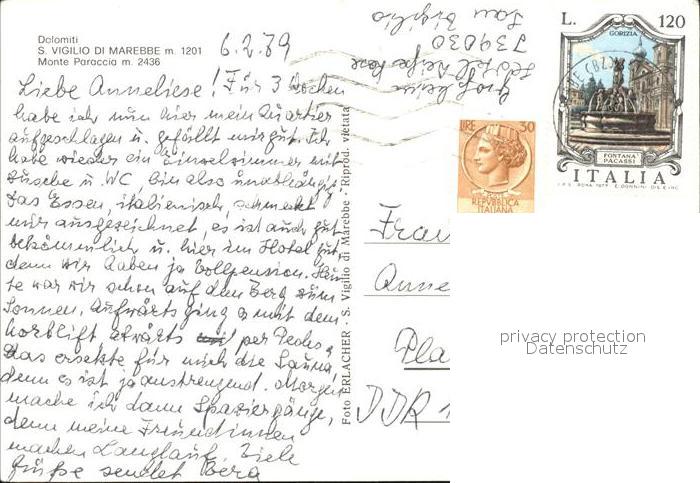 Dolomiti
S. VIGILIO DI MAREBBE m. 1201
Monte Paraccia m. 2436
6.2.79
Liebe Anneliese! Für 3 Wochen
habe ich nun hier mein Quartier
aufgeschlagen u. gefällt mir gut. Ich
habe wieder ein Einzelzimmer mit
Dusche u. WC, bin also unabhängig.
Das Essen, italienisch, schmeckt
mir ausgezeichnet, es ist auch gut
bekömmlich u. hier im Hotel gut,
denn wir haben ja Vollpension. Heu
te war ich schon auf dem Berg zum
Sonnen. Aufwärts ging es mit dem
Korblift abwärts per Pedes.
Das ersetzte für mich die Sauna,
denn es ist ja anstrengend. Morgen
mache ich dann Spaziergänge,
denn meine Freundinnen
machen Langlauf. Viele
Grüße sendet
Foto ERLACHER - S. Vigilio di Marebbe - Riprod. vietata
Hotel
I 39030
San Vigilio
LIRE 30
REPUBBLICA
ITALIANA
L. 120
GORIZIA
FONTANA
PACASSI
ITALIA
I.P.S. ROMA 1977 E. DONNINI DIS. E INC.
Frau
Anne
Pla
DDR 1
privacy protection
Datenschutz